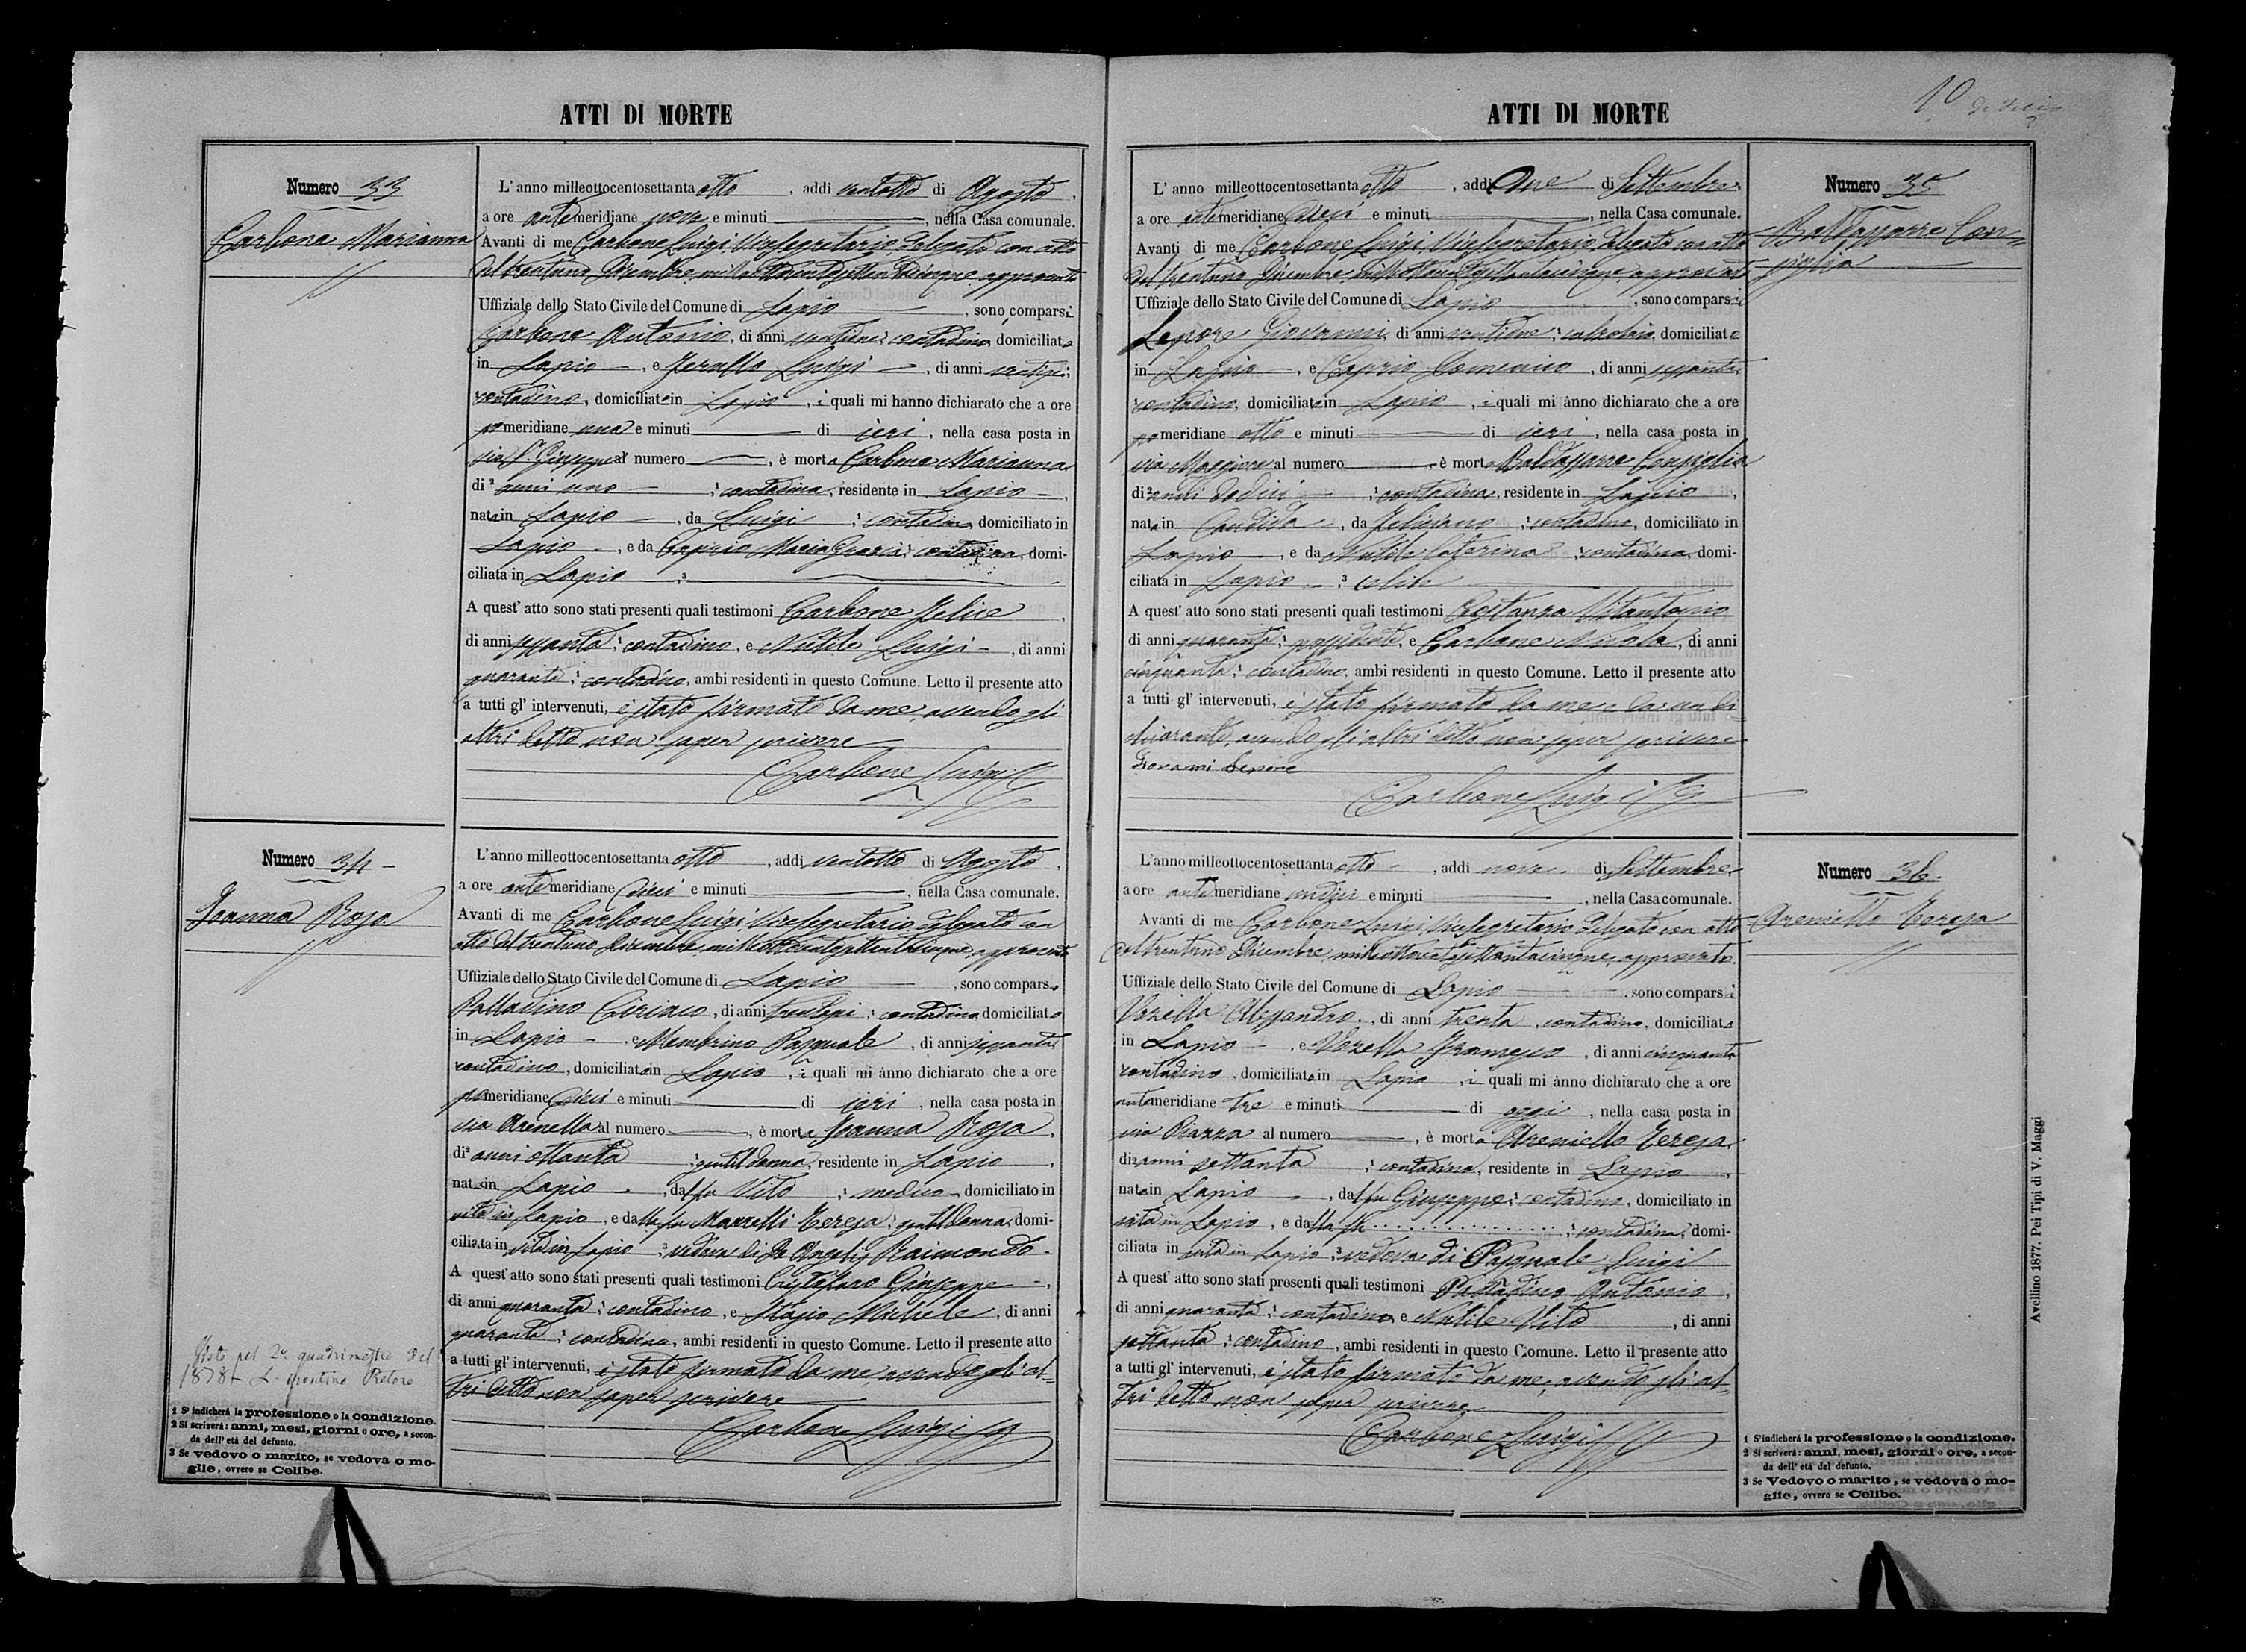 ATTI DI MORTE
Numero 33
Carbone Marianna
L' anno milleottocentosettanta otto, addi ventotto di Agosto,
a ore antemeridiane nove e minuti, nella Casa comunale.
Avanti di me Carbone Luigi, Vicesegretario delegato con atto
del trentuno Dicembre milleottocentosettantacinque approvato
Uffiziale dello Stato Civile del Comune di Lapio, sono comparsi
Carbone Antonio, di anni; contadino domiciliato
in Lapio, e Luigi, di anni
contadino, domiciliato in Lapio, i quali mi hanno dichiarato che a ore
pomeridiane una e minuti di ieri, nella casa posta in
via S. Giuseppe al numero, è morta Carbone Marianna
di anni uno; contadina, residente in Lapio,
nata in Lapio, da Luigi; contadino domiciliato in
Lapio, e da Caprio Maria Grazia; contadina, domi-
ciliata in Lapio, 3
A quest' atto sono stati presenti quali testimoni Carbone Felice,
di anni sessanta; contadino, e Nutile Luigi, di anni
quaranta; contadino, ambi residenti in questo Comune. Letto il presente atto
a tutti gl' intervenuti, è stato firmato da me, avendo gli
altri detto non saper scrivere
Carbone Luigi
Numero 34
Joanna Rosa
L'anno milleottocentosettanta otto, addi ventotto di Agosto,
a ore antemeridiane dieci e minuti, nella Casa comunale.
Avanti di me Carbone Luigi, Vicesegretario delegato con
atto del trentuno Dicembre milleottocentosettantacinque approvato
Uffiziale dello Stato Civile del Comune di Lapio, sono comparsi
Palladino Ciriaco, di anni trentasei; contadino domiciliato
in Lapio, e Membrino Pasquale, di anni sessanta;
contadino, domiciliato in Lapio, i quali mi ànno dichiarato che a ore
pomeridiane dieci e minuti di ieri, nella casa posta in
via Arenella al numero, è morta Joanna Rosa,
di² anni ottanta; gentildonna, residente in Lapio,
nata in Lapio, dal fu Vito; medico, domiciliato in
vita in Lapio, e dalla fu Marrelli Teresa; gentildonna, domi-
ciliata in vita in Lapio; vedova di De Angelis Raimondo.
A quest' atto sono stati presenti quali testimoni Cristofaro Giuseppe,
di anni quaranta; contadino, e Michele, di anni
quaranta; contadino, ambi residenti in questo Comune. Letto il presente atto
a tutti gl' intervenuti, è stato firmato da me, avendo gli al-
tri detto non saper scrivere
Carbone Luigi
Visto pel 2º quadrimestre del
1878 Pretore
1 S' indicherá la professione o la condizione.
2 Si scriverá: anni, mesi, giorni o ore, a secon-
da dell' etá del defunto.
3 Se vedovo o marito, se vedova o mo-
glie, ovvero se Celibe.
ATTI DI MORTE
10
Numero 35
Baldassarre Con=
siglia
L' anno milleottocentosettanta otto, addi due di Settembre
a ore antemeridiane dieci e minuti, nella Casa comunale.
Avanti di me Carbone Luigi, Vicesegretario delegato con atto
del trentuno Dicembre milleottocentosettantacinque approvato
Uffiziale dello Stato Civile del Comune di Lapio, sono comparsi
Lepore Giovanni, di anni; calzolaio, domiciliato
in Lapio, e Caprio Domenico, di anni sessanta;
contadino, domiciliato in Lapio, i quali mi ànno dichiarato che a ore
pomeridiane otto e minuti di ieri, nella casa posta in
via Maggiore al numero, è morta Baldassarre Consiglia
di² anni dodici; contadina, residente in Lapio,
nata in Candida, da Feliciano; contadino, domiciliato in
Lapio, e da Nutile Caterina; contadina, domi-
ciliata in Lapio; ³ celibe
A quest' atto sono stati presenti quali testimoni Costanza Vitantonio
di anni quaranta; possidente, e Carbone Nicola, di anni
cinquanta; contadino, ambi residenti in questo Comune. Letto il presente atto
a tutti gl' intervenuti, è stato firmato da me e da un di-
chiarante, avendo gli altri detto non saper scrivere
Giovanni Lepore
Carbone Luigi
Numero 36.
Areniello Teresa
L'anno milleottocentosettanta otto, addi nove di Settembre
a ore antemeridiane undici e minuti, nella Casa comunale.
Avanti di me Carbone Luigi, Vicesegretario delegato con atto
del trentuno Dicembre milleottocentosettantacinque approvato
Uffiziale dello Stato Civile del Comune di Lapio, sono comparsi
Vozella Alessandro, di anni trenta, contadino, domiciliato
in Lapio, e Vozella Francesco, di anni cinquanta
contadino, domiciliato in Lapio, i quali mi ànno dichiarato che a ore
antemeridiane tre e minuti di oggi, nella casa posta in
via Piazza al numero, è morta Areniello Teresa
di² anni settanta; contadina, residente in Lapio,
nata in Lapio, dal fu Giuseppe; contadino, domiciliato in
vita in Lapio, e dalla fu ..................; contadina, domi-
ciliata in vita in Lapio; ³ vedova di Pasquale Luigi
A quest' atto sono stati presenti quali testimoni Palladino Antonio,
di anni quaranta; contadino, e Nutile Vito, di anni
settanta; contadino, ambi residenti in questo Comune. Letto il presente atto
a tutti gl' intervenuti, è stato firmato da me, avendo gli al-
tri detto non saper scrivere
Carbone Luigi
1 S'indicherá la professione o la condizione.
2 Si scriverá: anni, mesi, giorni o ore, a secon-
da dell' etá del defunto.
3 Se Vedovo o marito, se vedova o mo-
glie, ovvero se Celibe.
Avellino 1877. Pei Tipi di V. Maggi